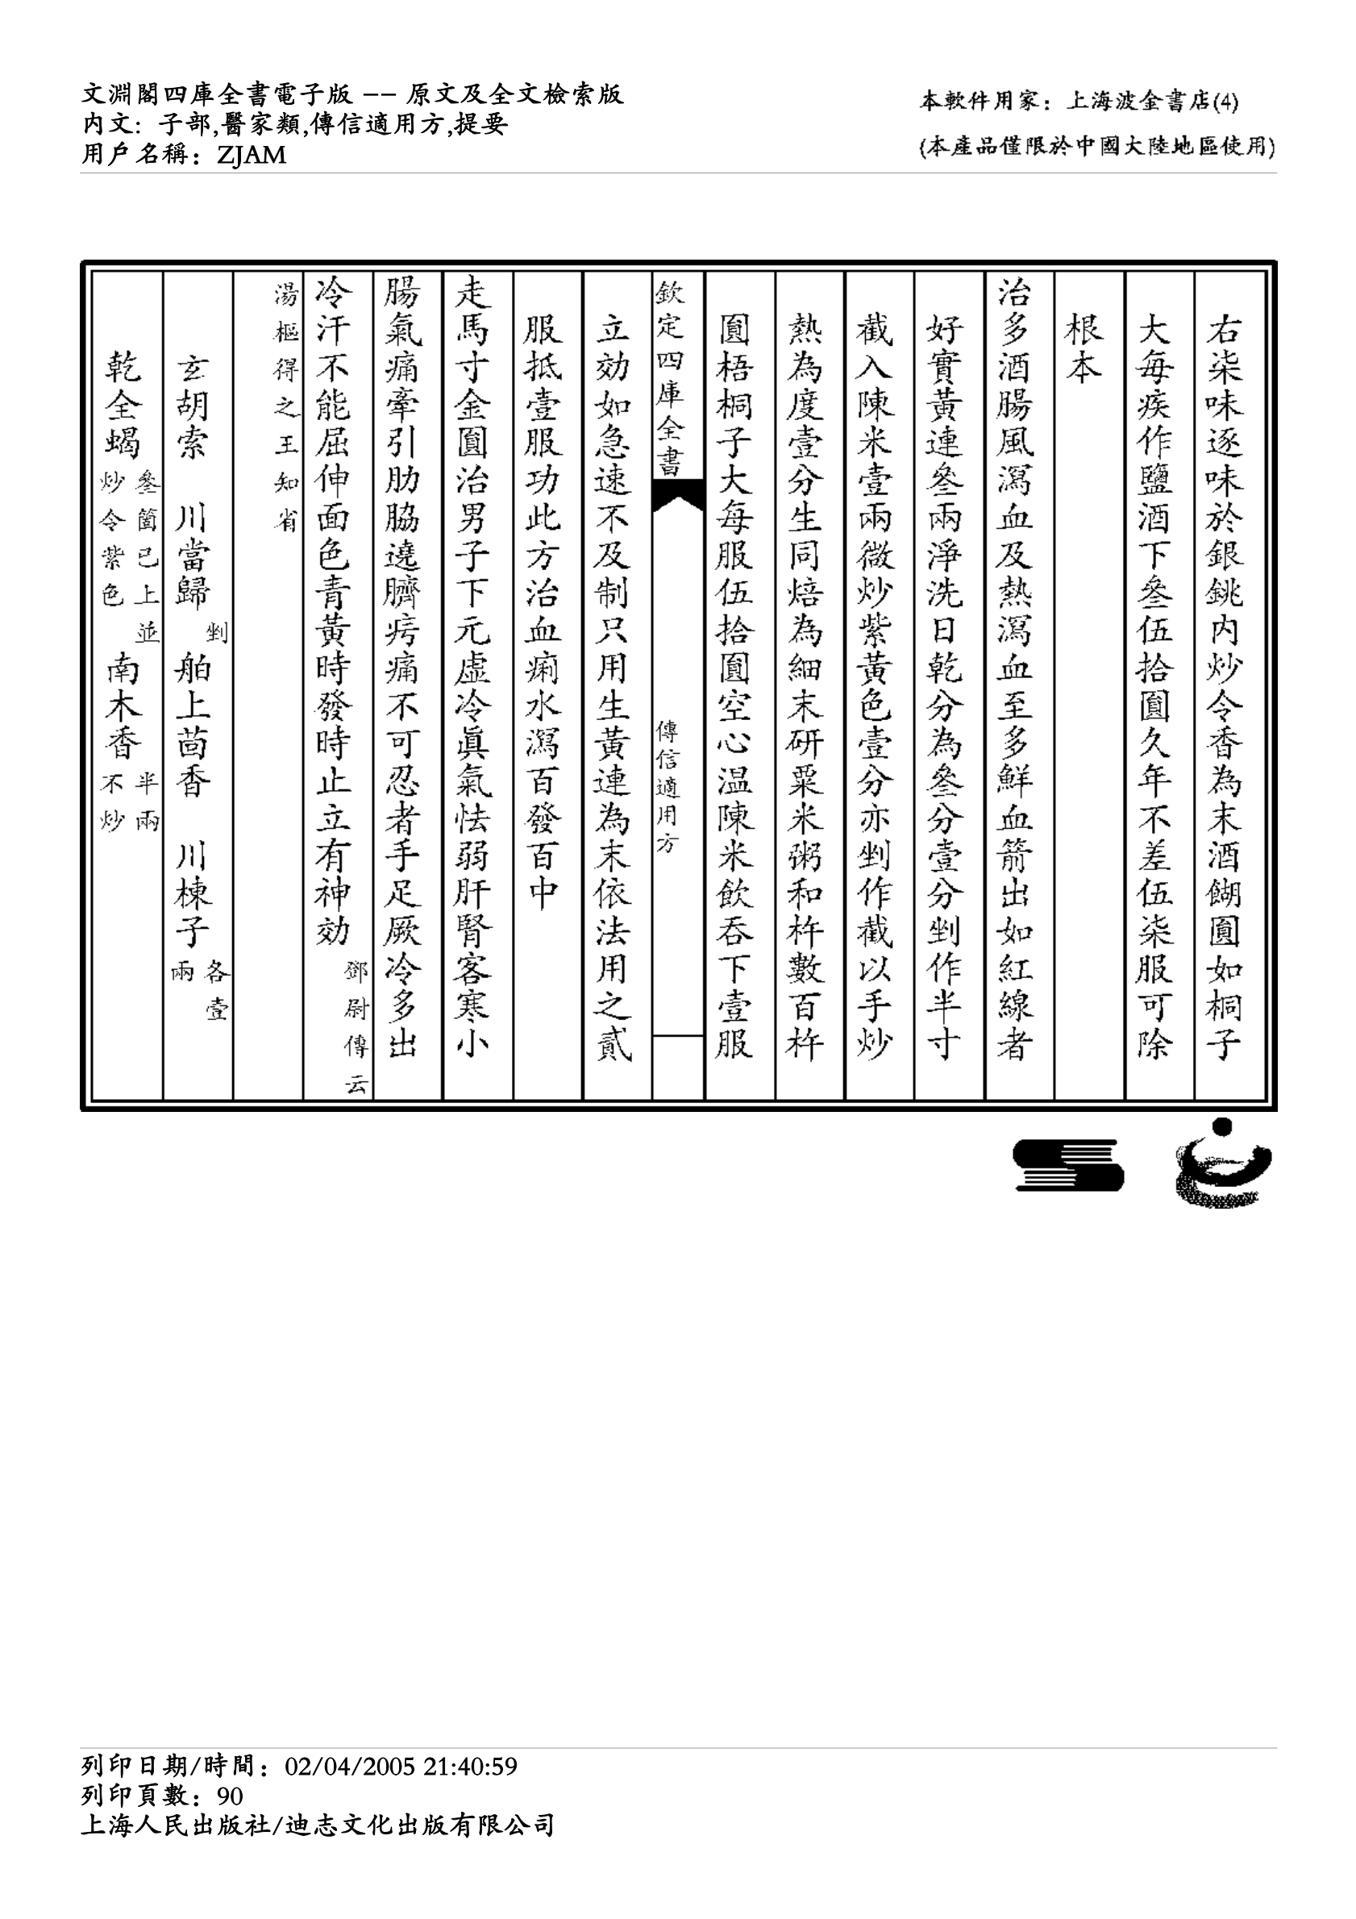 文淵閣四庫全書電子版 -- 原文及全文檢索版
内文: 子部,醫家類,傳信適用方,提要
用戶名稱: ZJAM
本軟件用家: 上海波金書店(4)
(本產品僅限於中國大陸地區使用)
右柒味逐味於銀銚内炒令香為末酒餬圓如桐子
大每疾作鹽酒下叄伍拾圓久年不差伍柒服可除
根本
治多酒腸風瀉血及熱瀉血至多鮮血箭出如紅線者
好實黄連叄兩淨洗日乾分為叄分壹分剉作半寸
截入陳米壹兩微炒紫黄色壹分亦剉作截以手炒
熱為度壹分生同焙為細末研粟米粥和杵數百杵
圓梧桐子大每服伍拾圓空心温陳米飲吞下壹服
欽定四庫全書
傳信適用方
立効如急速不及制只用生黄連為末依法用之貳
服抵壹服功此方治血痢水瀉百發百中
走馬寸金圓治男子下元虚冷眞氣怯弱肝腎客寒小
腸氣痛牽引肋脇遶臍㽱痛不可忍者手足厥冷多出
冷汗不能屈伸面色青黄時發時止立有神効鄧尉傳云
湯樞得之王知省
玄胡索 川當歸剉 舶上茴香 川楝子各壹兩
乾全蝎叄箇已上並炒令紫色 南木香半兩不炒
列印日期/時間: 02/04/2005 21:40:59
列印頁數: 90
上海人民出版社/迪志文化出版有限公司